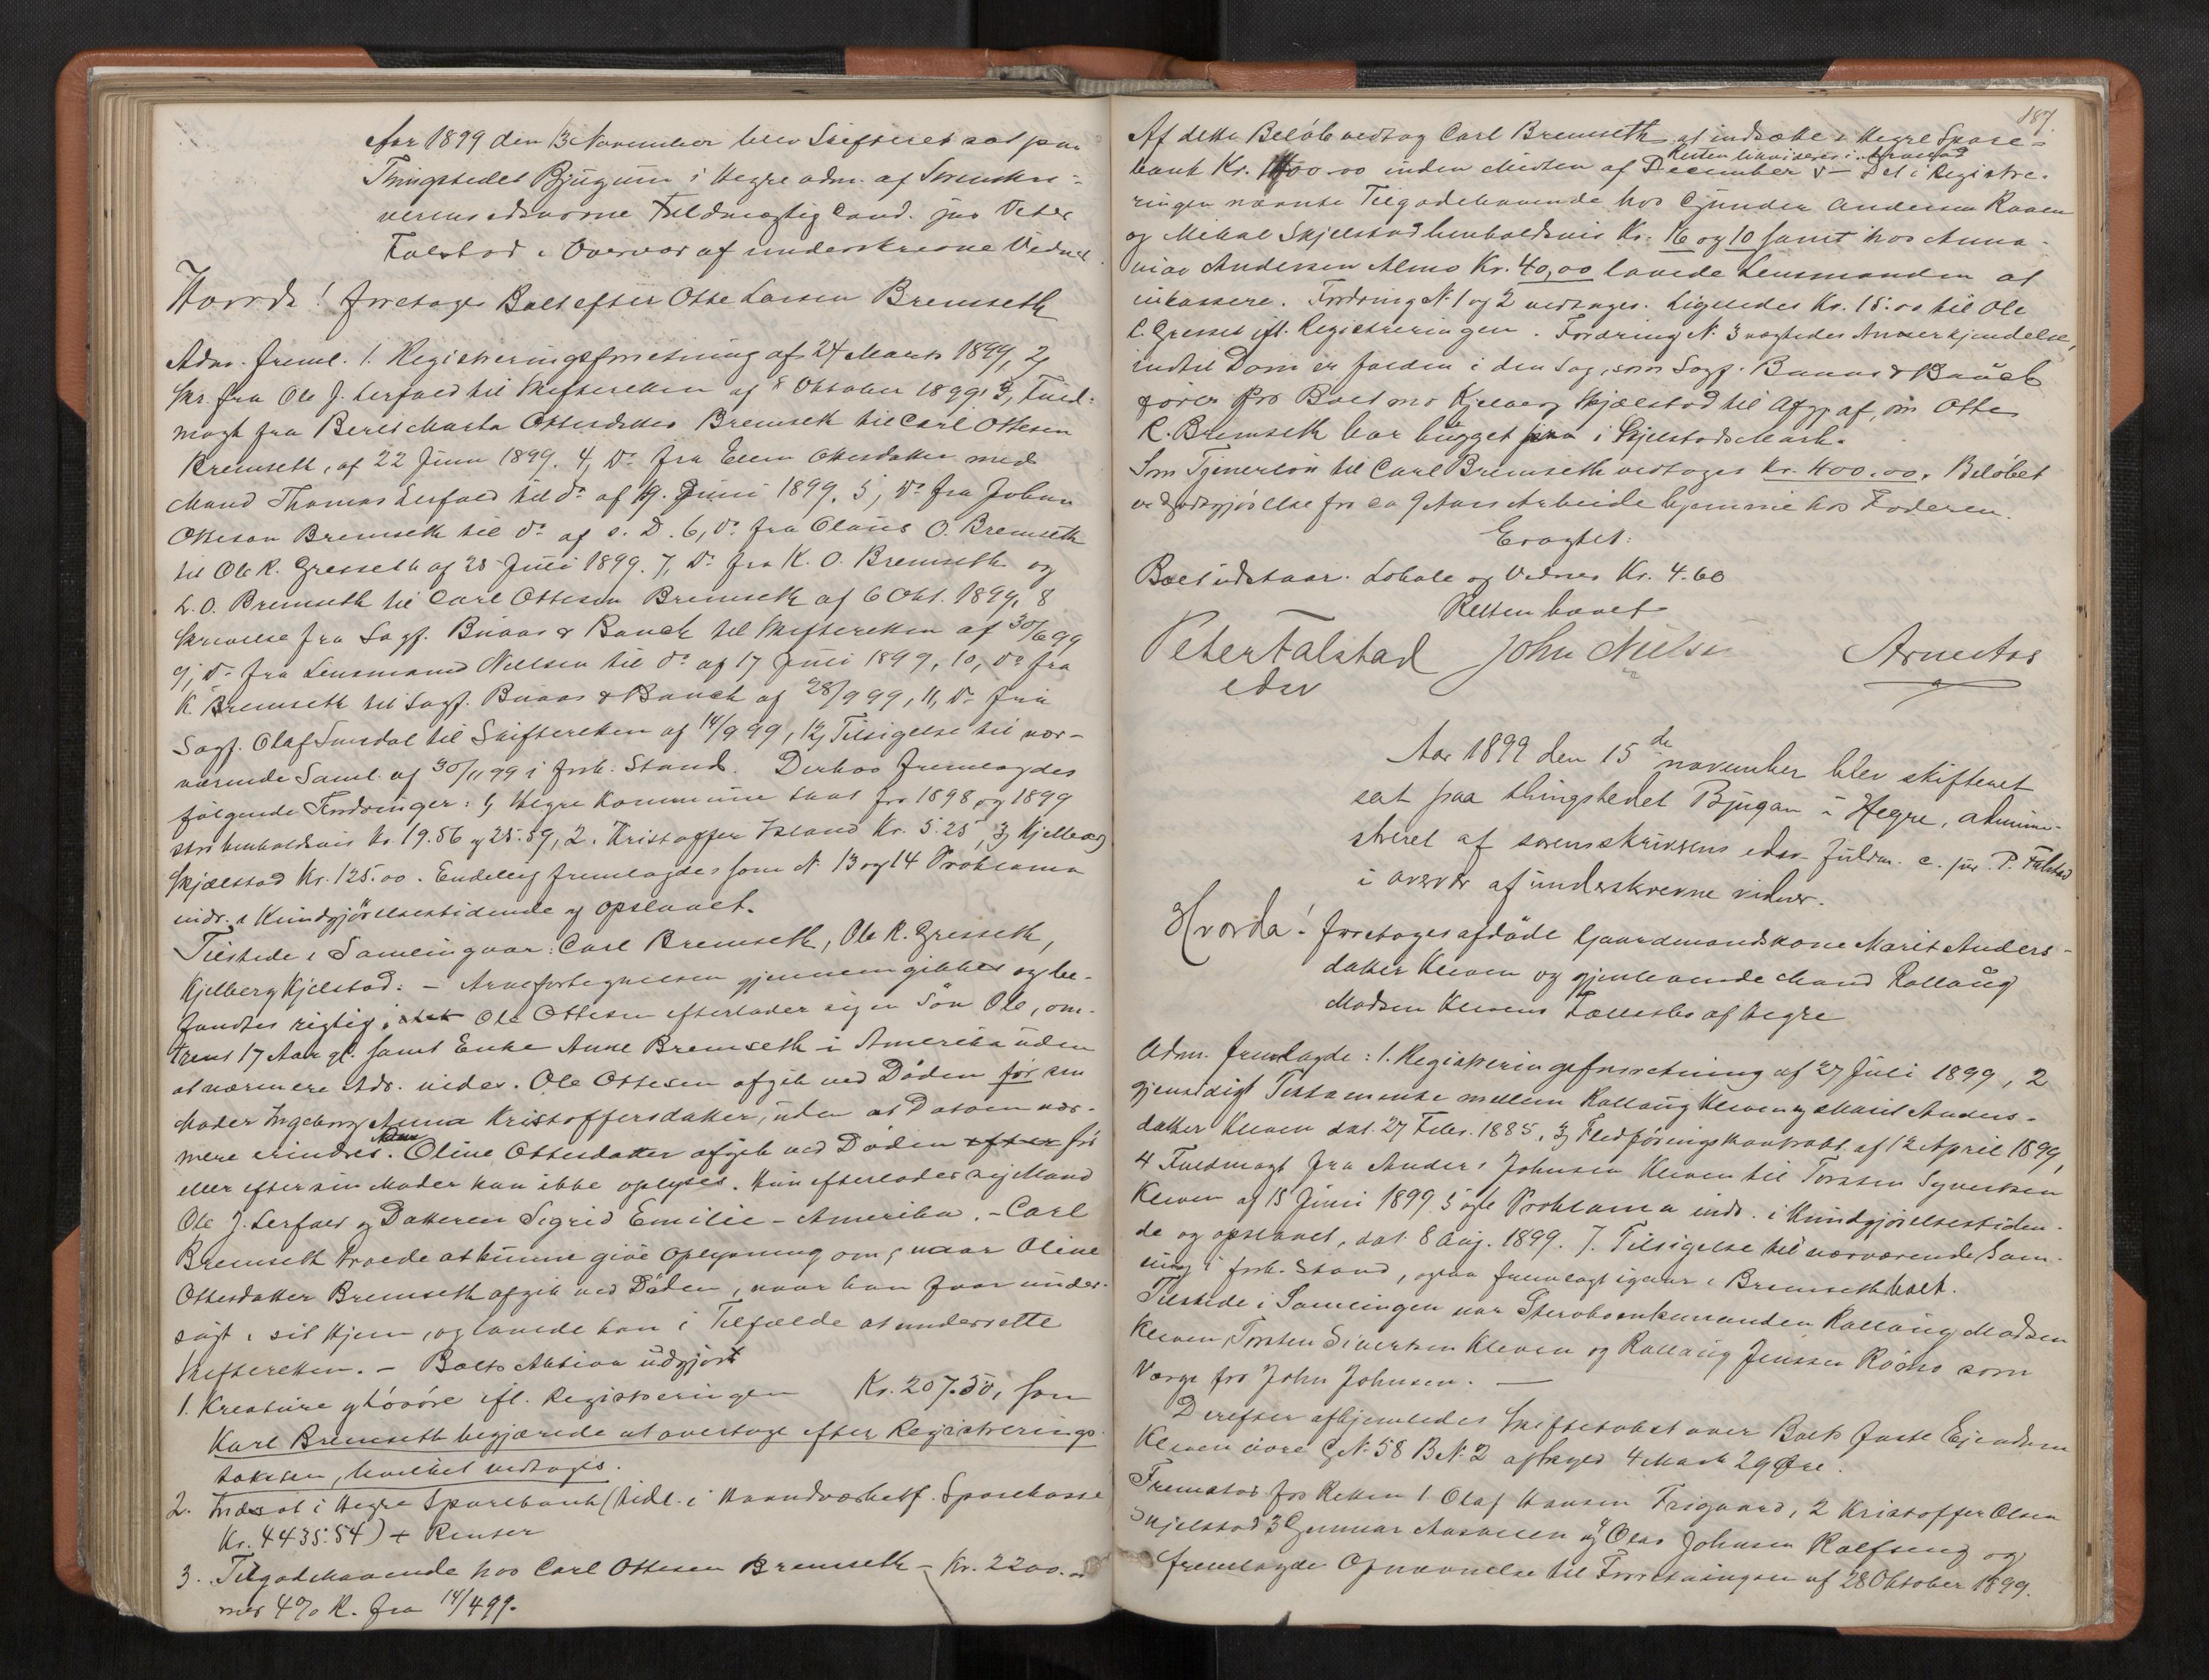 Aar 1899 den 13 November blev Skifteret sat paa
Thingstedet Bjugum i Hegre adm. af Sorenskri-
verens edsvorne Fuldmægtig Cand. jur Peter
Falstad i Overvær af underskrevne Vidner.
Hvorda! foretages Boet efter Otte Larsen Bremseth
Adm. freml. 1. Registreringsforretning af 24 Marts 1899, 2,
Skr. fra Ole J. Lerfald til Skifteretten af 8 Oktober 1899, 3, Fuld-
magt fra Berit Marta Ottesdatter Bremseth til Carl Ottesen
Bremseth, af 22 Juni 1899. 4, Do fra Elen Ottesdatter med
Mand Thomas Lerfald til do af 19. Juni 1899. 5, Do fra Johan
Ottesen Bremseth til do af s. D. 6, Do fra Olaus O. Bremseth
til Ole R. Gresseth af 28 Juni 1899. 7, Do fra K. O. Bremseth og
L. O. Bremseth til Carl Ottesen Bremseth af 6 Okt. 1899, 8
Skrivelse fra Sagf. Buaas & Bauck til Skifteretten af 30/6 99
9, Do fra Lensmand Nielsen til do af 17 Juli 1899, 10, Do fra
K. Bremseth til Sagf. Buaas & Bauck af 28/9 99, 11, Do fra
Sagf. Olaf Sundal til Skifteretten af 14/9 99, 12, Tilsigelse til nær-
værende Saml. af 30/11 99 i fork. Stand. Derhos fremlagdes
følgende Fordringer: 1, Hegre Kommune Skat for 1898 og 1899
stor henholdsvis Kr. 19.56 og 25.59, 2. Kristoffer Kr. 5.25, 3, Kjelberg
Skjælstad Kr. 125.00. Endelig fremlagdes som N. 13 og 14 Proklama
indr. i Kundgjørelsestidende og opslaaet.
Tilstede i Samlingen var: Carl Bremseth, Ole R. Gresseth,
Kjelberg Kjelstad: – Arvefortegnelsen gjennemgikkes og be-
fandtes rigtig, Ole Ottesen efterlader sig en Søn Ole, om-
trent 17 Aar gl. samt Enke Anne Bremseth i Amerika uden
at nærmere Adr. vides. Ole Ottesen afgik ved Døden før sin
Moder Ingeborg Anna Kristoffersdatter, uden at Datoen nær-
mere erindres. Oline Ottesdatter afgik ved Døden efter før
eller efter sin Moder kan ikke oplyses. Hun efterlader sig Mand
Ole J. Lerfald og Datteren Sigrid Emilie – Amerika. – Carl
Bremseth troede at kunne give Oplysning om, naar Oline
Ottesdatter Bremseth afgik ved Døden, naar han faar under-
søgt i sit Hjem, og lovede han i Tilfælde at underrette
Skifteretten. – Boets Aktiva udgjør
1. Kreature og Løsøre ifl. Registreringen Kr. 207.50, som
Karl Bremseth begjærede at overtage efter Registrerings-
taksten, hvilket vedtages.
2. Indsat i Hegre Sparebank (tidl. i Haandværkerf. Sparekasse
Kr. 4435.54) + Renter
3. Tilgodehavende hos Carl Ottesen Bremseth – Kr. 2200.-
med 4% R. fra 14/4 99.
187.
Af dette Beløb vedtog Carl Bremseth at indsætte i Hegre Spare-
Resten likvideres i Arvelod
bank Kr. 1400.00 inden Midten af December. – Det i Registre-
ringen nævnte Tilgodehavende hos Gunder Andersen Raaen
og Mikal Skjelstad henholdsvis Kr. 16 og 10 samt hos Anna-
nias Andersen Almo Kr. 40,00 lovede Lensmanden at
inkassere. Fordring N. 1 og 2 vedtages. Ligeledes Kr. 15.00 til Ole
R. Gresset ifl. Registreringen. Fordring N. 3 nægtedes Anerkjendelse,
indtil Dom er falden i den Sag, som Sagf. Buaas & Bauck
fører for Boet mod Kjelberg Skjælstad til Afgj. af, om Otte
L. Bremseth har hugget i Skjelstads Mark.
Som Tjenerløn til Carl Bremseth vedtages Kr. 400.00. Beløbet
er Godtgjørelse for ca 9 Aars Arbeide hjemme hos Faderen.
Eragtet:
Boet udstaar. Lokale og Vidner Kr. 4.60
Retten hævet
Peter Falstad John Nielsen Arne Aas
edsv
Aar 1899 den 15de november blev skifteret
sat paa thingstedet Bjugan i Hegre, admini-
streret af sorenskriverens edsv. fuldm. c. jur. P. Falstad
i overvær af underskrevne vidner.
Hvorda! foretages afdøde Gaardmandskone Marit Anders-
datter Kleven og gjenlevende Mand Rallaug
Madsen Klevens Fællesbo af Hegre
Adm. fremlagde: 1. Registreringsforretning af 27 Juli 1899, 2
gjensidigt Testamente mellem Rallaug Kleven og Marit Anders-
datter Kleven dat. 27 Febr. 1885, 3, Fledføringskontrakt af 12 April 1899,
4 Fuldmagt fra Anders Johnsen Kleven til Torsten Syvertsen
Kleven af 15 Juni 1899. 5 og 6 Proklama indr. i Kundgjørelsestiden-
de og opslaaet, dat. 8 Aug. 1899. 7. Tilsigelse til nærværende Sam-
ling i fork. Stand, ogsaa fremlagt igaar i Bremsethboet.
Tilstede i Samlingen var Sterboenkemanden Rallaug Madsen
Kleven, Torsten Sivertsen Kleven og Rallaug Jenssen som
Værge for John Johnsen. —
Derefter afhjemledes Skiftetakst over Boets faste Eiendom
Kleven øvre G.N. 58 B.N. 2 af Skyld 4 Mark 29 Øre.
Fremstod for Retten 1. Olaf Hansen Trigaard, 2 Kristoffer Olsen
Skjelstad 3 Gunnar Aasveen og 4 Olaus Johnsen Ralfseng og
fremlagde Opnævnelse til Forretningen af 28 Oktober 1899.